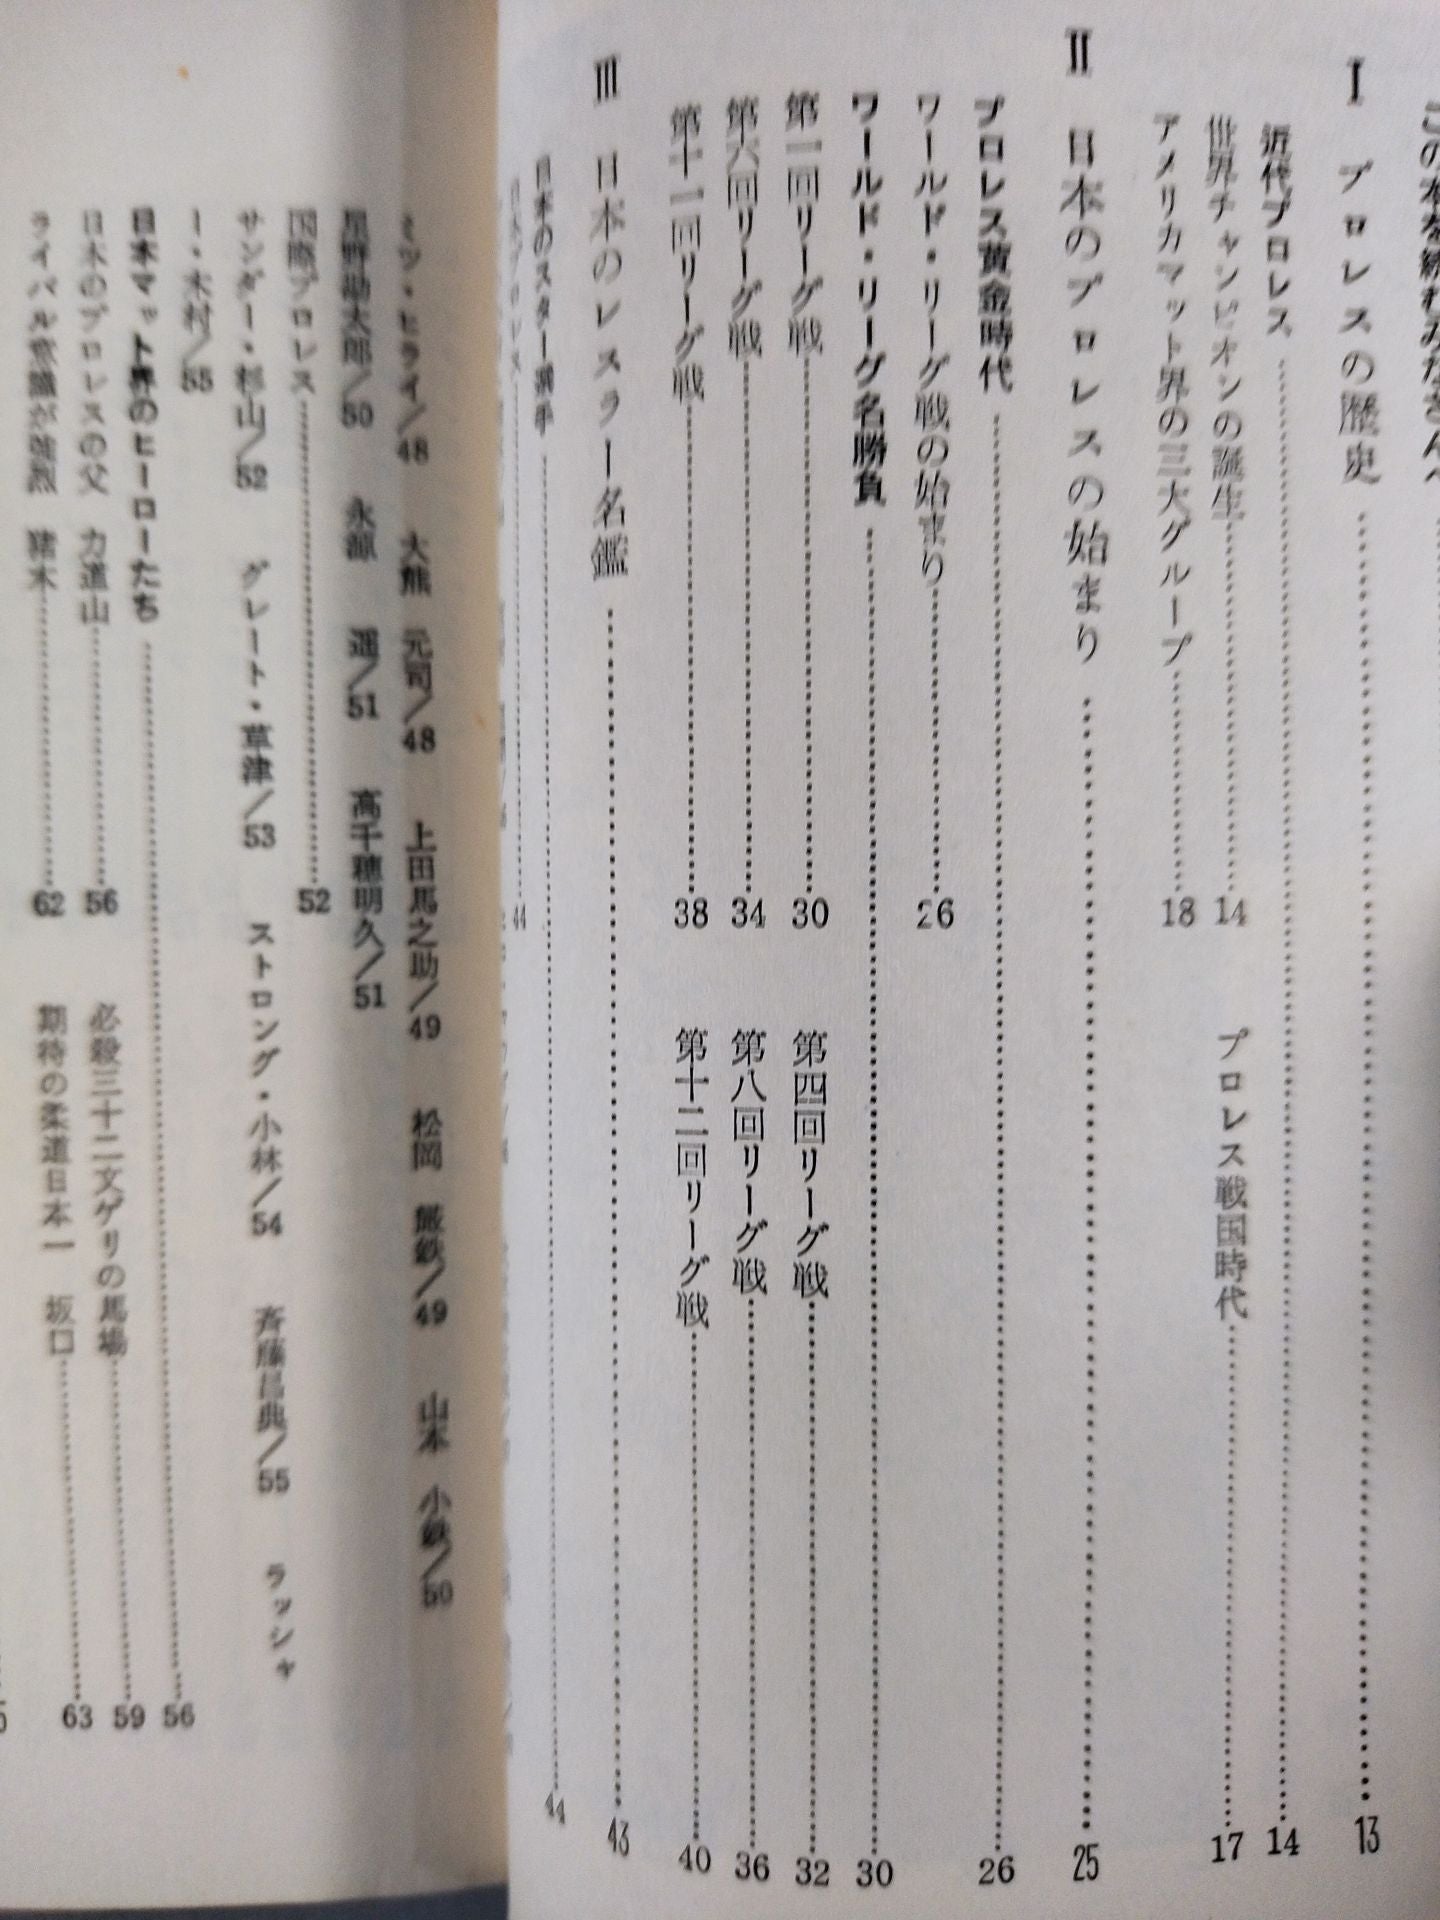 この本を読むみなさんへ
Ⅰ プロレスの歴史……13
近代プロレス……14
世界チャンピオンの誕生……14 プロレス戦国時代……17
アメリカマット界の三大グループ……18
Ⅱ 日本のプロレスの始まり……25
プロレス黄金時代……26
ワールド・リーグ戦の始まり……26
ワールド・リーグ名勝負……30
第一回リーグ戦……30 第四回リーグ戦……32
第六回リーグ戦……34 第八回リーグ戦……36
第十一回リーグ戦……38 第十二回リーグ戦……40
Ⅲ 日本のレスラー名鑑……43
日本のスター選手……44
日本プロレス……44
ミツ・ヒライ/48 大熊 元司/48 上田馬之助/49 松岡 巌鉄/49 山本 小鉄/50
星野勘太郎/50 永源 遥/51 高千穂明久/51
国際プロレス……52
サンダー・杉山/52 グレート・草津/53 ストロング・小林/54 斉藤昌典/55 ラッシャ
ー・木村/55
日本マット界のヒーローたち……56
日本のプロレスの父 力道山……56 必殺三十二文ゲリの馬場……59
ライバル意識が強烈 猪木……62 期待の柔道日本一 坂口……63